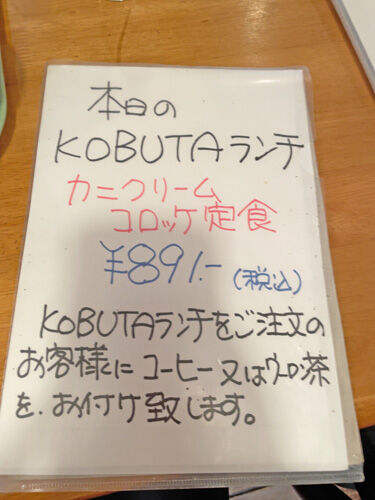 本日の
KOBUTAランチ
カニクリーム
コロッケ定食
¥891.-(税込)
KOBUTAランチをご注文の
お客様にコーヒー又はウーロン茶
を、お付け致します。